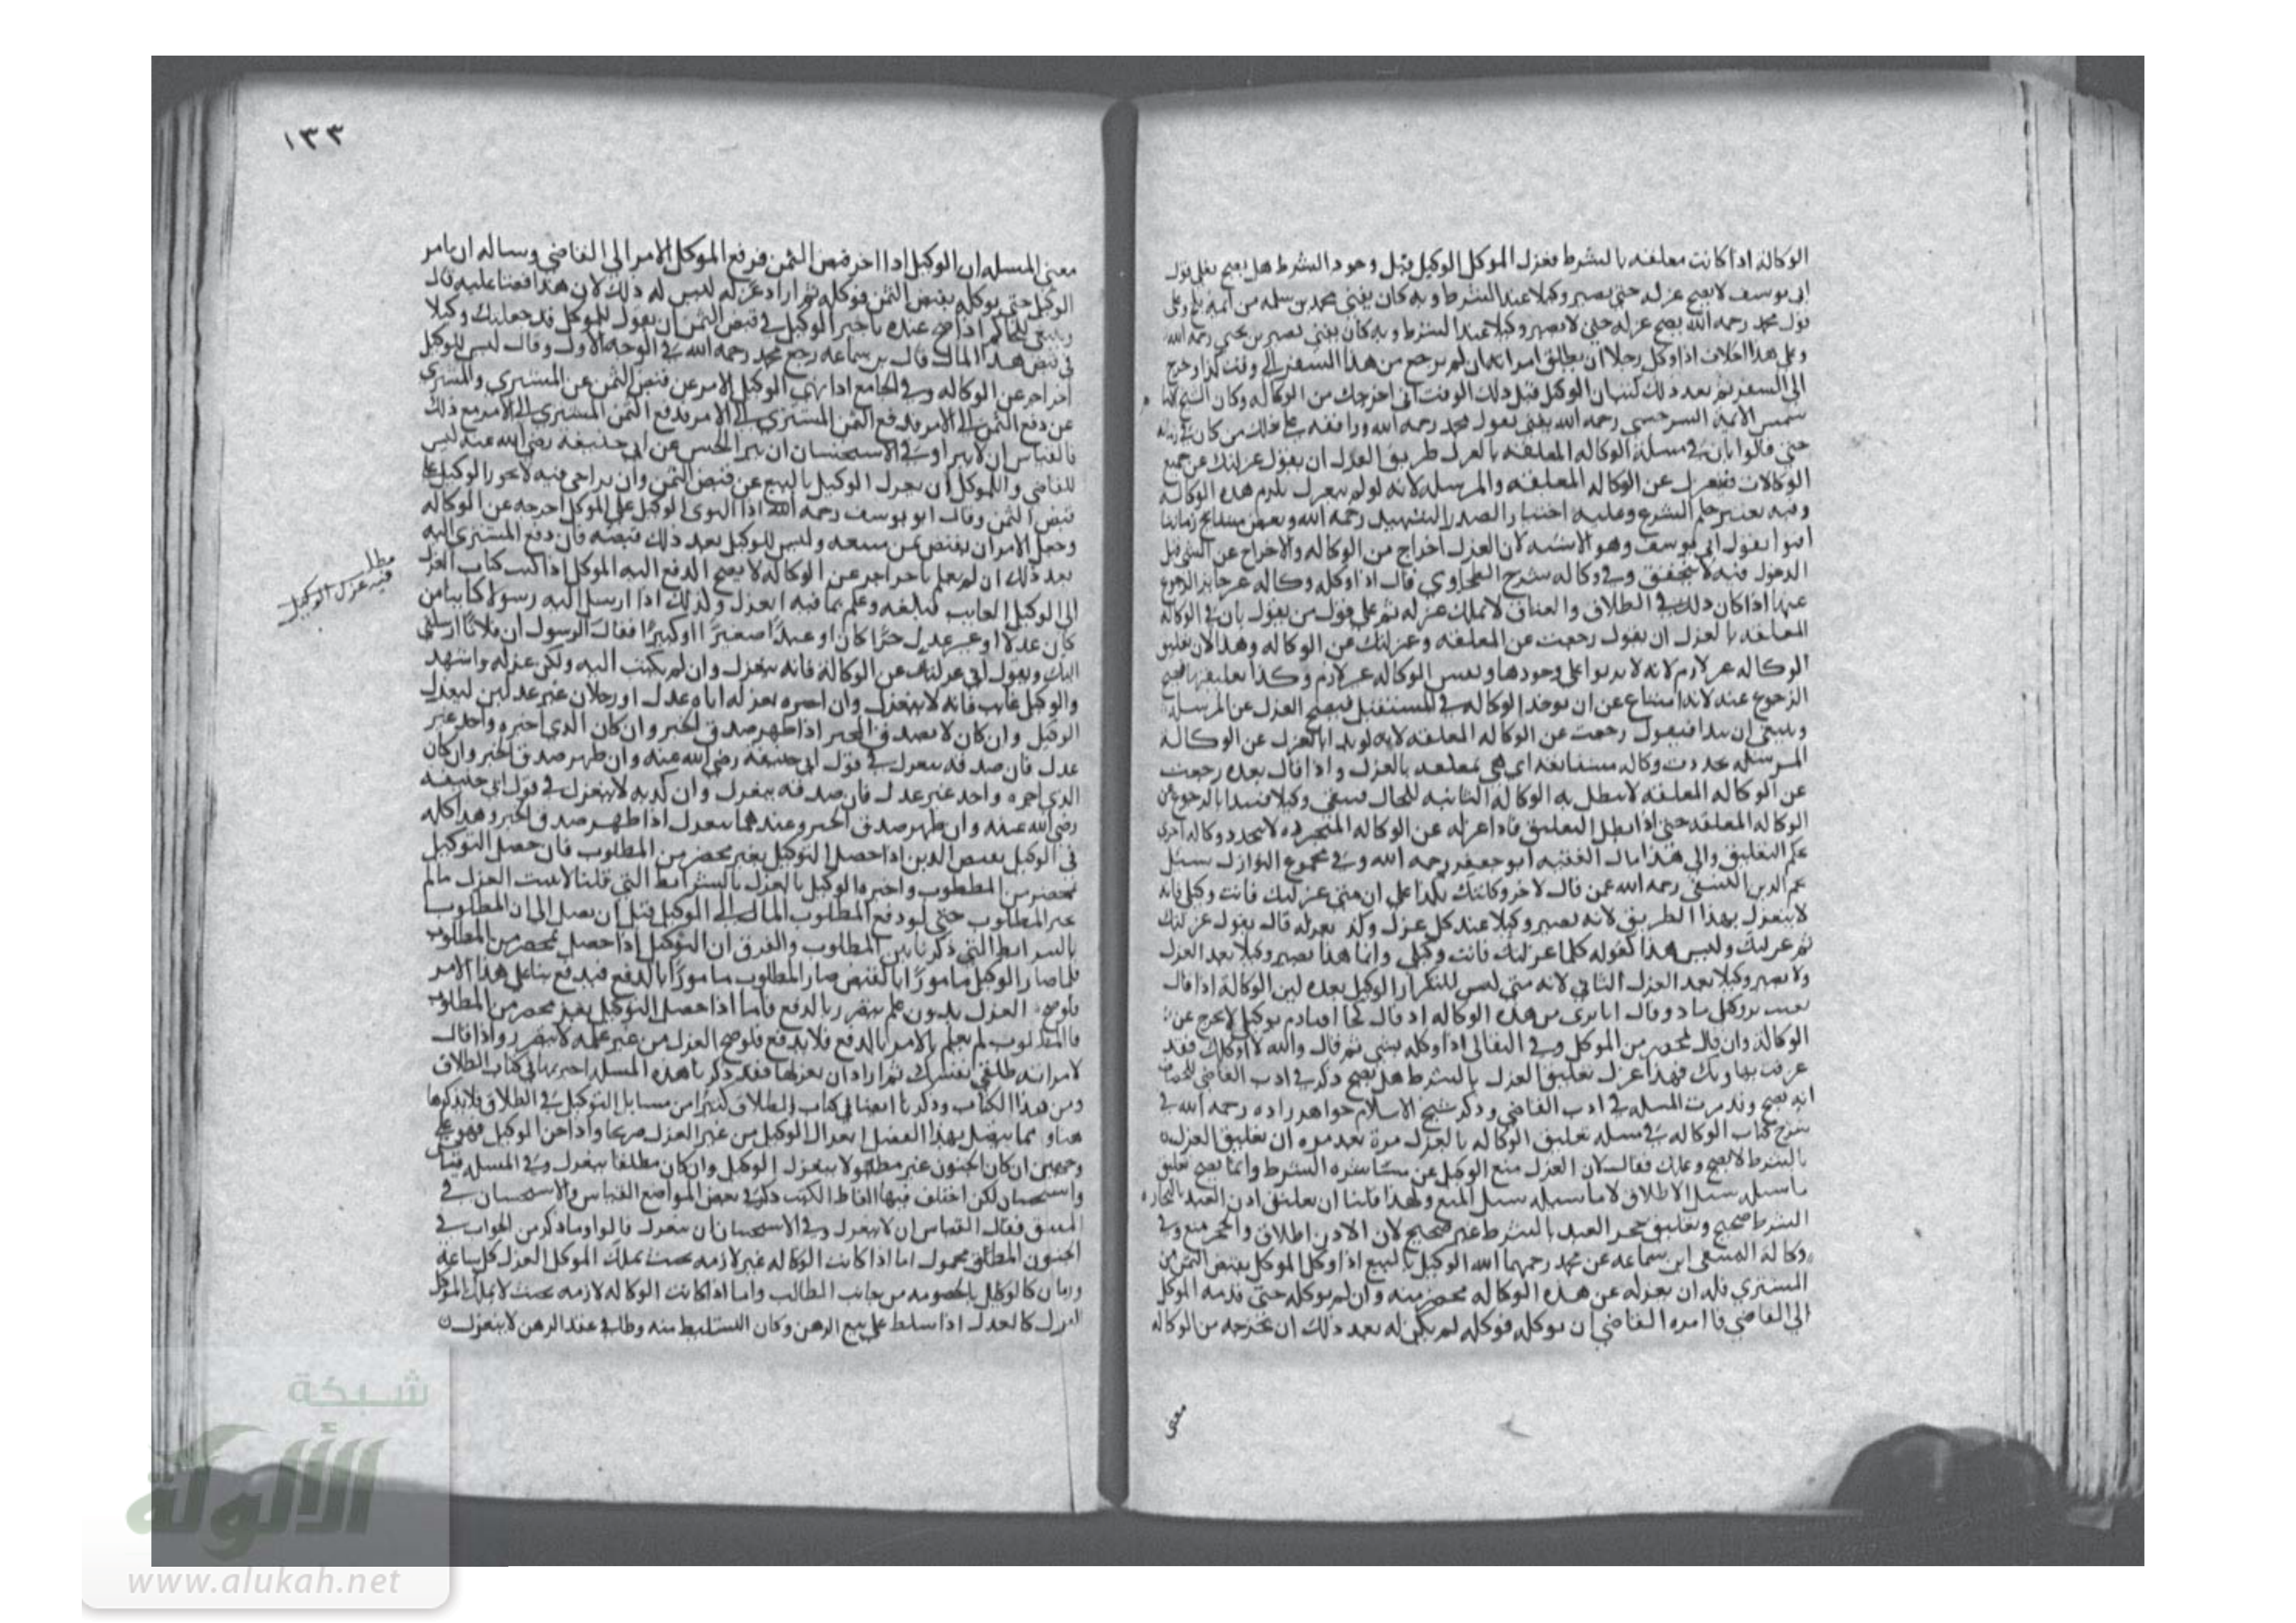 الوكالة اذا كانت معلقه بالشرط فعزل الموكل الوكيل قبل وجود الشرط هل يصح فعلى قول
ابى يوسف لا يصح عزله حتى يصير وكيلا عند الشرط وبه كان يفتى محمد بن سلمه من ايمة بلخ وعلى
قول محمد رحمه الله يصح عزله حتى لا يصير وكيلا عند الشرط وبه كان يفتى نصير بن يحيى رحمه الله
وعلى هذا الخلاف اذا وكل رجلا ان يطلق امراته ان لم يرجع من هذا السفر الى وقت كذا وخرج
الى السفر ثم بعد ذلك كتب الى الوكيل قبل ذلك الوقت انى اخرجتك من الوكاله وكان الشيخ
شمس الايمة السرخسى رحمه الله يفتى بقول محمد رحمه الله
حتى قالوا بان فى مسلة الوكاله المعلقه بالعزل طريق العزل ان يقول عزلتك عن جميع
الوكالات فينعزل عن الوكاله المعلقه والمرسله لانه لو لم ينعزل تلزم هذه الوكالة
وفيه تغيير حكم الشرع وعليه اختيار الصدر الشهيد رحمه الله وبعض مشايخ زماننا
افتوا بقول ابى يوسف وهو الاشبه لان العزل اخراج من الوكاله والاخراج عن الشى قبل
الدخول فيه لا يتحقق وفى وكاله شرح الطحاوي قال اذا وكله وكاله غير جايز الرجوع
عنها اذا كان ذلك فى الطلاق والعتاق لا يملك عزله ثم على قول من يقول بان فى الوكالة
المعلقه بالعزل ان يقول رجعت عن المعلقه وعزلتك عن الوكاله وهذا لان تعليق
الوكاله غير لازم لانه لا يربوا على وجودها ونفس الوكاله غير لازم وكذا تعليقها فيصح
الرجوع عنه لانه امتناع عن ان يوجد الوكاله فى المستقبل فيصح العزل عن المرسله
وينبغى ان يبدا فيقول رجعت عن الوكاله المعلقه لانه لو بدا بالعزل عن الوكالة
المرسله تحددت وكاله مستانفه اى هى معلقه بالعزل واذا قال بعده رجعت
عن الوكاله المعلقه لا تبطل به الوكالة الثانيه للحال فيبقى وكيلا فيبدا بالرجوع عن
الوكاله المعلقه حتى اذا بطل التعليق فاذا عزله عن الوكاله المنجزه لا تتحدد وكاله اخرى
بحكم التعليق والى هذا مال الفقيه ابو جعفر رحمه الله وفى مجموع النوازل سئل
نجم الدين النسفى رحمه الله عمن قال لاخر وكلتك بكذا على ان متى عزلتك فانت وكيلى فانه
لا ينعزل بهذا الطريق لانه يصير وكيلا عند كل عزل قال يقول عزلتك
ثم عزلتك وليس هذا كقوله كلما عزلتك فانت وكيلى وانما هذا يصير وكيلا بعد العزل
ولا يصير وكيلا بعد العزل الثانى لانه متى ليس للتكرار
الوكالة وان قال بمحضر من الموكل وفى البقالى اذا وكله بشى ثم قال والله لا اوكلك فقد
عرفت فهذا عزل تعليق العزل بالشرط هل يصح ذكر فى ادب القاضى للخصاف
انه يصح وقد مرت المسله فى ادب القاضى وذكر شيخ الاسلام خواهر زاده رحمه الله فى
شرح كتاب الوكاله فى مسله تعليق الوكاله بالعزل مرة بعد مره ان تعليق العزل
بالشرط لا يصح وعلل فقال لان العزل منع الوكيل عن مباشره الشرط وانما يصح تعليق
ما سبيله سبيل الاطلاق لا ما سبيله سبيل المنع ولهذا قلنا ان تعليق اذن العبد بالتجاره
الشرط صحيح وتعليق حجر العبد بالشرط غير صحيح لان الاذن اطلاق والحجر منع وفى
وكالة المنتقى ابن سماعه عن محمد رحمهما الله الوكيل بالبيع اذا وكل الموكل بقبض الثمن من
المشترى فله ان يعزله عن هذه الوكاله بمحضر منه وان لم يوكله حتى قدمه الموكل
الى القاضى فامره القاضى ان يوكله فوكله لم يكن له بعد ذلك ان يخرجه من الوكاله
معنى
١٣٣
معنى المسله ان الوكيل اذا اخر قبض الثمن فرفع الموكل الامر الى القاضى وساله ان يامر
الوكيل حتى يوكله بقبض الثمن فوكله ثم اراد عزله ليس له ذلك لان هذا قضا عليه قال
وينبغى للحاكم اذا صح عنده تاخير الوكيل فى قبض الثمن ان يقول للموكل قد جعلتك وكيلا
فى قبض هذا المال قال بن سماعه رجع محمد رحمه الله فى الوجه الاول وقال ليس للوكيل
اخراجه عن الوكاله وفى الجامع اذا نهى الوكيل الامر عن قبض الثمن عن المشترى والمشترى
عن دفع الثمن الى الامر فدفع الثمن المشترى الى الامر مع ذلك
فالقياس ان لا يبرا وفى الاستحسان ان يبرا الحسن عن ابى حنيفه رضى الله عنه ليس
للقاضى والموكل ان يعزل الوكيل بالبيع عن قبض الثمن وان تراخى فيه
قبض الثمن وقال ابو يوسف رحمه الله اذا التوى الوكيل على الموكل اخرجه عن الوكاله
وجعل الامر ان يقبض ثمن مبيعه وليس للوكيل بعد ذلك قبضه فان دفع المشترى اليه
بعد ذلك ان لم يعلم باخراجه عن الوكاله لا يصح الدفع اليه الموكل اذا كتب كتاب العزل
الى الوكيل الغايب فبلغه وعلم بما فيه انعزل وكذلك اذا ارسل اليه رسولا كاينا من
كان عدلا او غير عدل حرا كان او عبدا صغيرا او كبيرا فقال الرسول ان فلانا ارسلنى
اليك ويقول انى عزلتك عن الوكالة فانه ينعزل وان لم يكتب اليه ولكن عزله واشهد
والوكيل غايب فانه لا ينعزل وان اخبره بعزله اياه عدل او رجلان غير عدلين ينعزل
الوكيل وان كان لا يصدق المخبر اذا ظهر صدق الخبر وان كان الذى اخبره واحد غير
عدل فان صدقه ينعزل فى قول ابى حنيفه رضى الله عنه وان ظهر صدق الخبر وان كان
الذى اخبره واحد غير عدل فان صدقه ينعزل وان كذبه لا ينعزل فى قول ابى حنيفه
رضى الله عنه وان ظهر صدق الخبر وعندهما ينعزل اذا ظهر صدق الخبر وهذا كله
فى الوكيل بقبض الدين اذا حصل التوكيل بغير محضر من المطلوب فان حصل التوكيل
بمحضر من المطلوب واخبر الوكيل بالعزل بالشرايط التى قلنا لا يثبت العزل مالم
يخبر المطلوب حتى لو دفع المطلوب المال الى الوكيل قبل ان يصل الى المطلوب
بالشرايط التى ذكرنا المطلوب والفرق ان التوكيل اذا حصل بمحضر من المطلوب
فلما صار الوكيل مامورا بالقبض صار المطلوب مامورا بالدفع فيدفع بنا على هذا الامر
فلو صح العزل بدون علم يتضرر بالدفع فاما اذا حصل التوكيل بغير محضر من المطلوب
فالمطلوب لم يعلم بالامر بالدفع فلا يدفع فلو صح العزل من غير علمه لا يتضرر واذا قال
لامراته طلقى نفسك ثم اراد ان يعزلها فقد ذكرنا هذه المسله فى كتاب الطلاق
ومن هذا الكتاب وذكرنا ايضا فى كتاب الطلاق كثيرا من مسايل التوكيل فى الطلاق فلا نذكرها
هنا ومما يتصل بهذا الفصل انعزال الوكيل من غير العزل صريحا واذا جن الوكيل فهو على
وجهين ان كان الجنون غير مطبق لا ينعزل الوكيل وان كان مطلقا ينعزل وفى المسله قياس
واستحسان لكن اختلف فيها الفاظ الكتب ذكر فى بعض المواضع القياس والاستحسان فى
المطبق فقال القياس ان لا ينعزل وفى الاستحسان ان ينعزل قالوا وما ذكر من الجواب فى
الجنون المطلق محمول اما اذا كانت الوكاله غير لازمه بحيث يملك الموكل العزل كل ساعة
وزمان كالوكيل بالخصومه من جانب الطالب واما اذا كانت الوكاله لازمه بحيث لا يملك الموكل
العزل كالعدل اذا سلط على بيع الرهن وكان التسليط عقد الرهن لا ينعزل
مطلب
فيه عزل الوكيل
شبكة
الألوكة
www.alukah.net